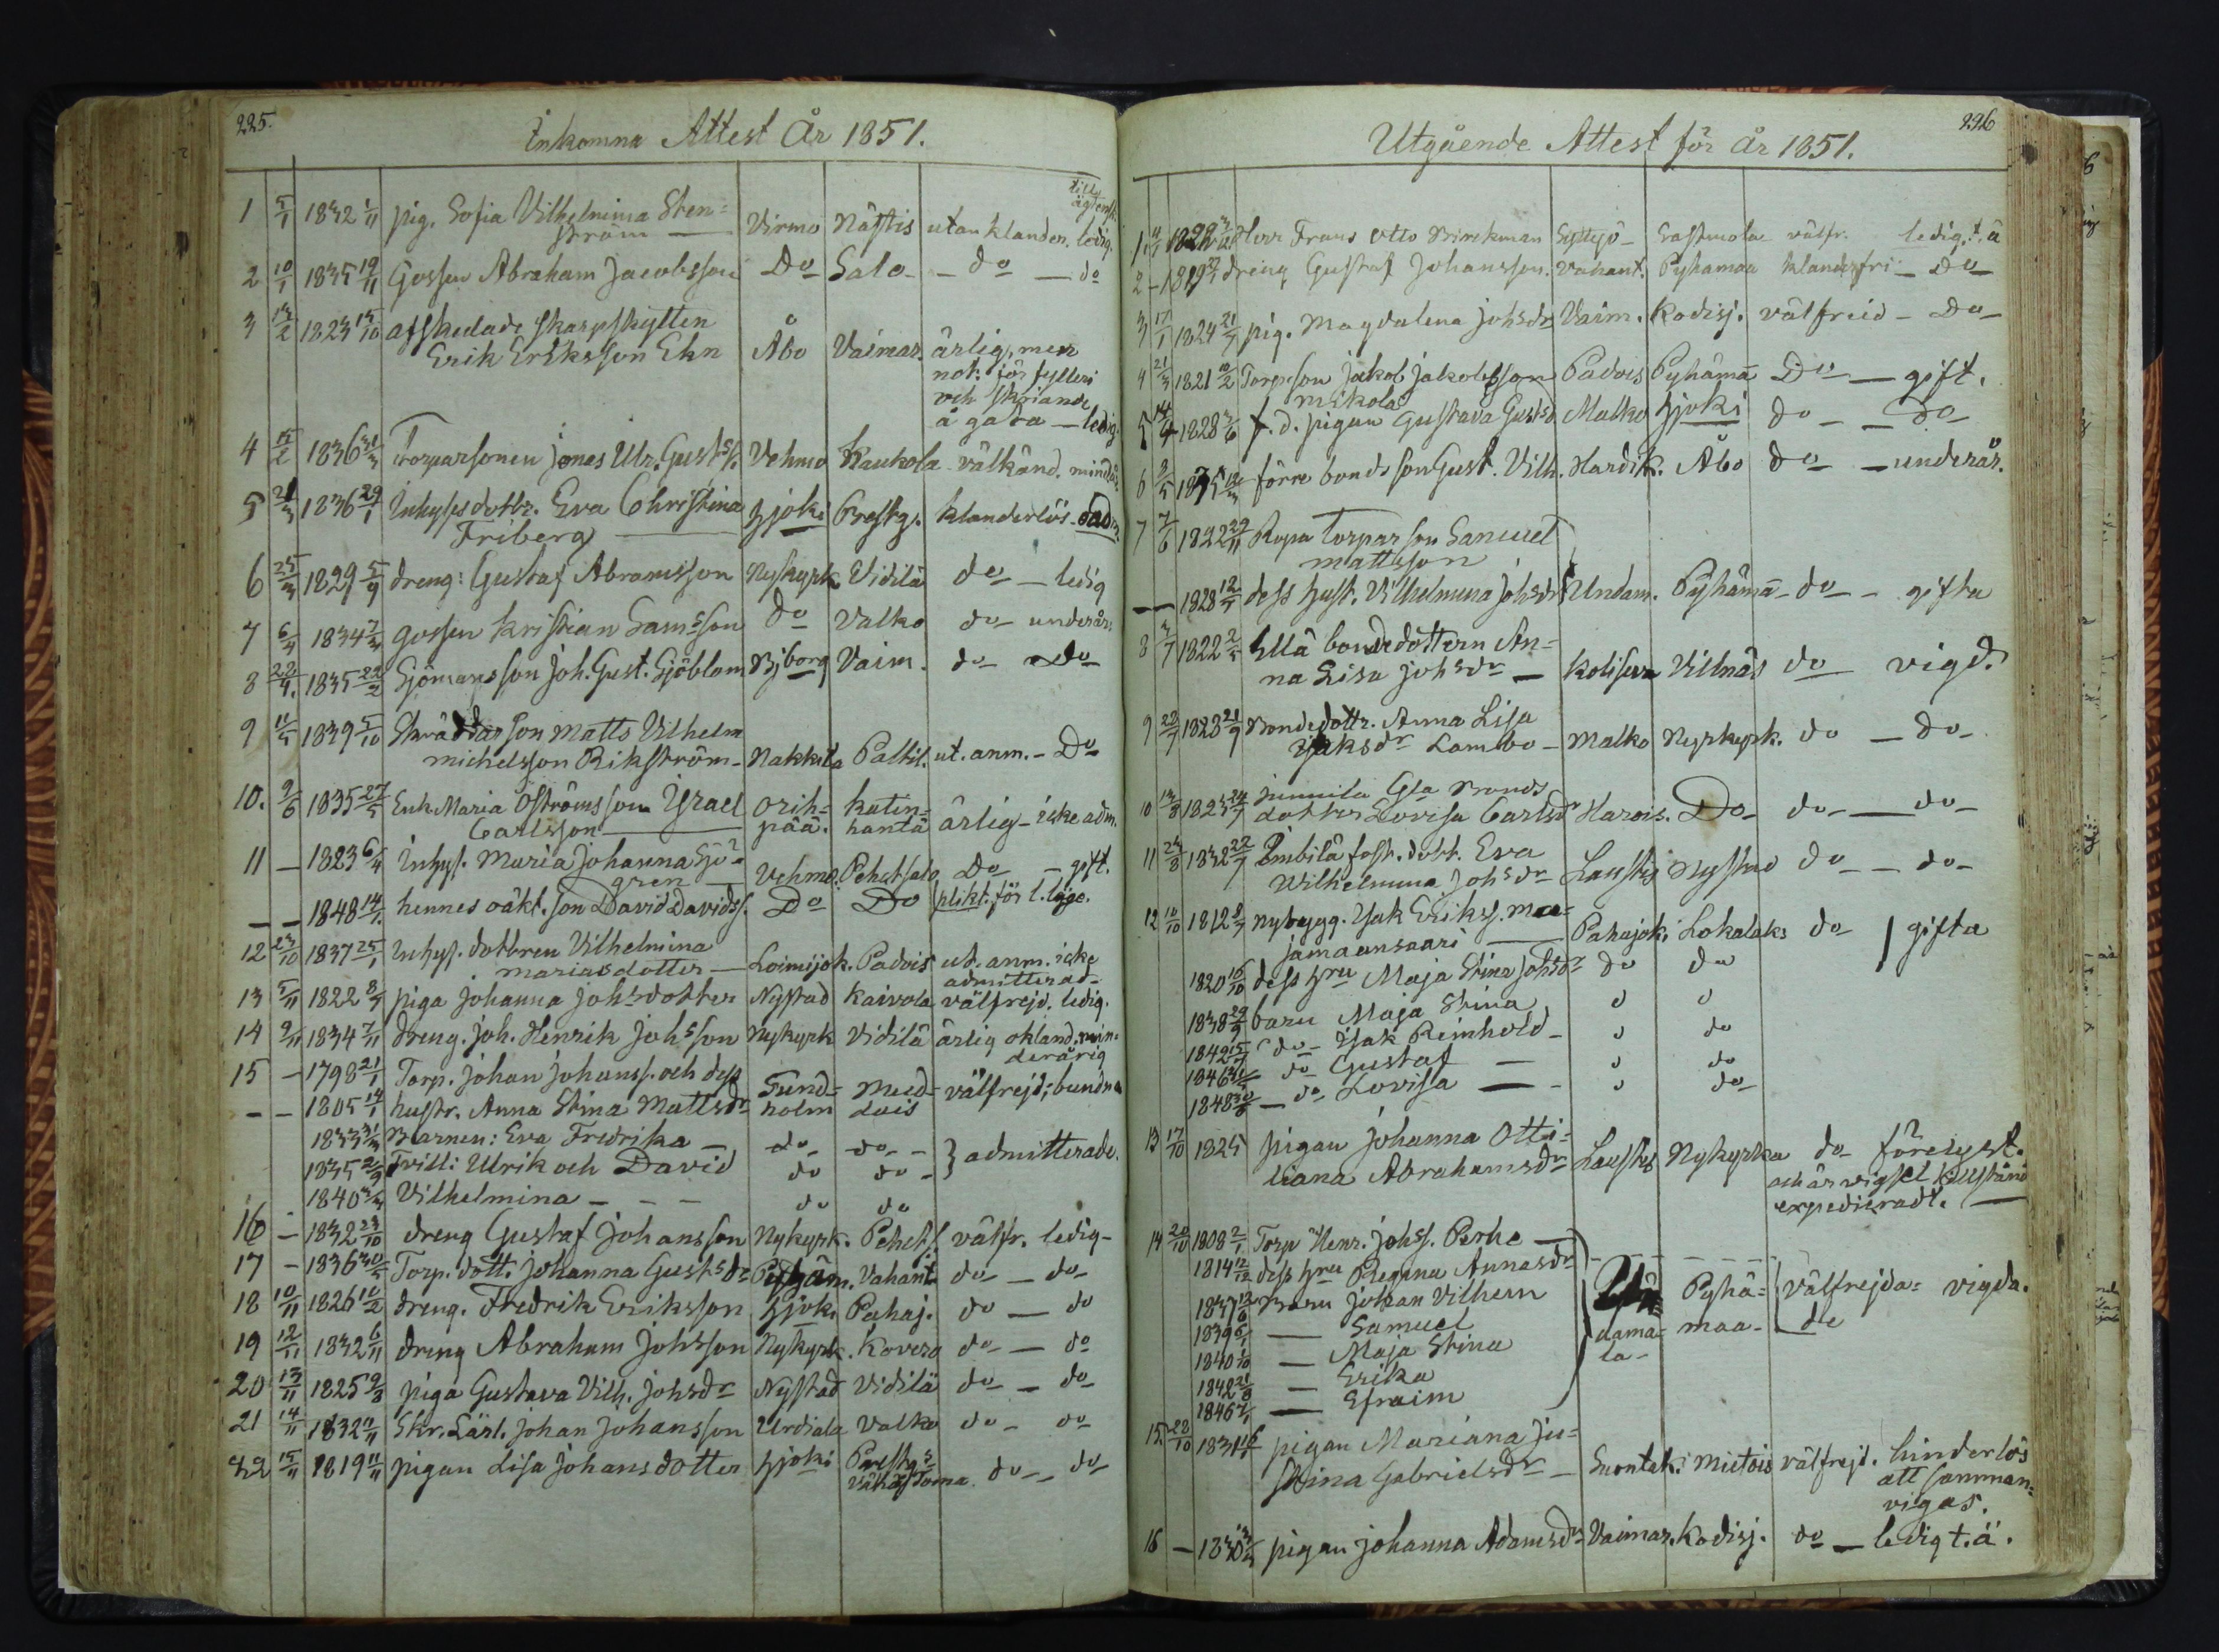 225.
Inkomna Attest År 1851.
till ägtensk.
1 5/1 1832 1/11 pig. Sofia Vilhelmina Sten= Virmo Nästis utan klander. ledig.
ström
2 10/1 1835 19/11 Gossen Abraham Jacobsson Do Salo - do - do
3 13/2 1823 15/10 afskedade skarpskytten
Erik Eriksson Ekn Åbo Vaimar. ärlig, men
not: för fylleri
och skriande
å gata - ledig.
4 15/2 1836 31/3 Torparsonen Jonas Ulr. Gusts s. Vehmo Kaukola välkänd. mindår.
5 21/3 1836 29/1 Inhyses dottr. Eva Christina Hjoki Prestg. klanderlös -
Friberg
6 25/3 1829 5/9 dreng: Gustaf Abramsson Nykyrk Vidilä do - ledig
7 6/4 1834 7/4 gossen Kristian Samsson do Valko do underår.
8 28/4. 1835 22/2 Sjömansson Joh. Gust. Sjöblom Bjborg Vaim. do - do
9 11/5 1839 5/10 Skräddarson Matts Vilhelm
Michelsson Rikström - Nakkila Paltil. ut. anm. - Do
10. 9/6 1835 27/5 Enk. Maria Öströms son Israel Orih= katin=
Carlsson pää. hantä ärlig - icke adm.
11 - 1823 6/4 Inhys. Maria Johanna Sjö=
gren Vehmo. Pehetsalo Do - gift.
- - 1848 14/1. hennes oäkt. son David Davids s. Do Do plikt. för l. läge.
12 23/10 1837 25/1 Inhys. dottren Vilhelmina
Mariasdotter - Loimijok. Padois ut. anm. icke
admitterad -
13 5/11 1822 8/7 piga Johanna Johsdotter Nystad Kaivola välfrejd. ledig.
14 9/11 1834 7/11 dreng. Joh. Henrik Johsson Nykyrk Vidilä ärlig okland. min=
derårig
15 - 1798 21/1 Torp. Johan Johanss. och dess Sund= Mied= välfrejd; bundna
- - 1805 14/1 hustr. Anna Stina Mattsdr holm dois
1833 31/3 Barnen: Eva Fredrika - do - do -
1835 2/9 Tvill: Ulrik och David do do - } admitterade.
1840 Vilhelmina - - - do do
16 - 1832 23/10 dreng Gustaf Johansson Nykyrk. Pehets. välfr. ledig -
17 - 1836 30/5 Torp. dott. Johanna Gustsdr Pyhäm. Vahant. do - do
18 10/11 1826 10/2 dreng. Fredrik Eriksson Hjoki Pahaj. do - do
19 12/11 1832 6/11 dreng Abraham Johsson Nykyrk. Kovero do - do
20 13/11 1825 9/8 piga Gustava Vilh. Johsdr Nystad Vidilä do - do
21 14/11 1832 11/11 Skr. Lärl. Johan Johansson Urdiala Valko do - do
22 15/11 1819 11/11 pigan Lisa Johansdotter Hjoki Prestgs
do - do
226
Utgående Attest för år 1851.
1. 11/1 Herr Frans Otto Brinkman Sylttyö- Sastmola välfr. ledig t. ä
2 - 1819 dreng Gustaf Johansson. Vahant. Pyhämaa klanderfri - Do
3 17/1 1824 21/7 pig. Magdalena Johsdr Vaim. Kodisj. välfreid - Do
4 21/3 1821 10/2 Torp. son Jakob Jakobsson Padois Pyhämä Do - gift.
Mikola
5 14/4 1828 3/6 f. d. pigan Gustava Gustsd. Malko Hjoki do - Do
6 2/5 1835 förre bondsson Gust. Vilh. Hardik. Åbo do - underår.
7 7/6 1822 29/11 Ropa Torparson Samuel
Mattsson
- - 1828 12/5 dess hust. Vilhelmina Johsdr Undam. Pyhämä - do - gifta
8 3/7 1822 2/5 Yllä bondedottern An=
na Lisa Johsdr - Koliseva Villnäs do vigd.
9 22/7 1828 21/9 Bondedottr. Anna Lisa
Isaksdr Lambo - Malko Nykyrk. do - do
10 13/8 1825 24/7 Junnila Gla Bonds
dotter Lovisa Carlsdr Harois. Do - do - do
11 24/8 1832 22/7 dott. Eva
Wilhelmina Johsdr Laustis Nystad do - do
12 10/10 1812 8/7 nybygg. Isak Erikss. Ma=
jamaansaari Pahajoki Lokalaks do gifta
1820 16/10 dess hru Maja Stina Johsdr do do
1838 29/9 barn Maja Stina
1842 15/7 do - Isak Reinhold - do
1846 do Gustaf - do
1848 - do Lovisa - do
13 17/10 1825 pigan Johanna Otti=
liana Abrahamsdr Laustis Nykyrka do förelyst.
och är vigsel tillstånd
expedieradt.
14 20/10 1808 2/1 Torp Henr. Johss. Perhe
1814 12/12 dess hru Regina Annasdr
1837 13/6 Barn Johan Vilhem Un= Pyhä= välfrejda= vigda.
1839 6/1 - Samuel dama= maa - de
1840 1/10 - Maja Stina la -
1842 21/8 - Erika
1846 7/1 - Efraim
15 28/10 1831 pigan Mariana Ju=
stina Gabrielsdr - Suontaki Mietois välfrejd. hinderlös
att samman=
vigas.
16 - 1830 pigan Johanna Adamsdr Vaimar. Kodisj. do - ledig t. ä.